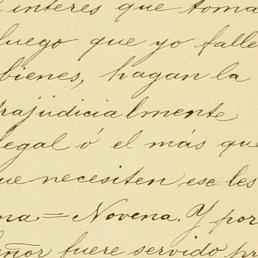 interes que toma
luego que yo falle
bienes, hagan la
rajudicialmente
legal ó el más que
ue necesiten ese les
na = Novena. Y por
eñor fuere servido pr